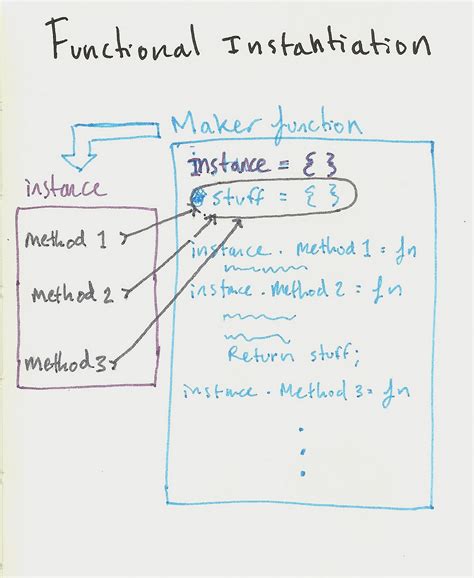 Functional Instantiation
Maker function
instance = { }
stuff = { }
instance . Method 1 = fn
instance . Method 2 = fn
Return stuff;
instance . Method 3 = fn
instance
Method 1
Method 2
Method 3